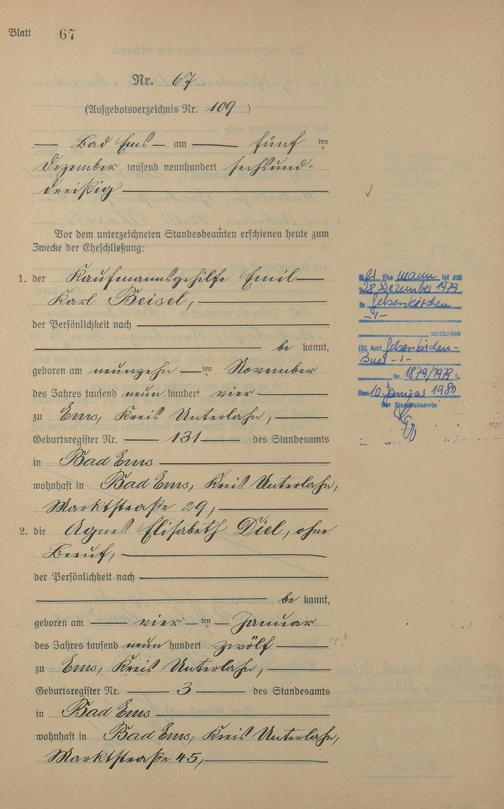 Blatt 67
Nr. 67
(Aufgebotsverzeichnis Nr. 109)
Bad Ems am fünf ten
Dezember tausend neunhundert sechsund-
dreißig
Vor dem unterzeichneten Standesbeamten erschienen heute zum
Zwecke der Eheschließung:
1. der Kaufmannsgehilfe Emil
Karl Beisel,
der Persönlichkeit nach
be kannt,
geboren am neunzehn ten November
des Jahres tausend neun hundert vier
zu Ems, Kreis Unterlahn,
Geburtsregister Nr. 131 des Standesamts
in Bad Ems
wohnhaft in Bad Ems, Kreis Unterlahn,
Marktstraße 29,
2. die Agnes Elisabeth Diel, ohne
Beruf,
der Persönlichkeit nach
be kannt,
geboren am vier ten Januar
des Jahres tausend neun hundert zwölf
zu Ems, Kreis Unterlahn,
Geburtsregister Nr. 3 des Standesamts
in Bad Ems
wohnhaft in Bad Ems, Kreis Unterlahn,
Marktstraße 45,
Ehe mann ist am
28. Dezember 1979
in Gelsenkirchen
verstorben
(St. Amt Gelsenkirchen-
Buer -1-
Nr. 1879/1979).
Den 10. Januar 1980
Der Standesbeamte